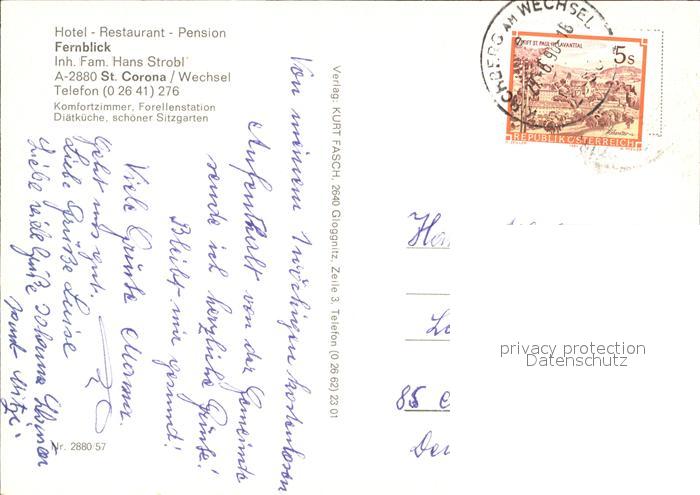 Hotel - Restaurant - Pension
Fernblick
Inh. Fam. Hans Strobl
A-2880 St. Corona / Wechsel
Telefon (0 26 41) 276
Komfortzimmer, Forellenstation
Diätküche, schöner Sitzgarten
Von meinem 1 wöchigen kostenlosen
Aufenthalt von der Gemeinde
sende ich herzliche Grüße!
Bleibt mir gesund!
Viele Grüße
Geht uns gut.
Liebe Grüße Luise
Liebe viele Grüße Johanna
samt Mitzi
Nr. 2880/57
Verlag: KURT FASCH, 2640 Gloggnitz, Zeile 3, Telefon (0 26 62) 23 01
KIRCHBERG AM WECHSEL
STIFT ST. PAUL IM LAVANTTAL
5 S
REPUBLIK ÖSTERREICH
85
privacy protection
Datenschutz